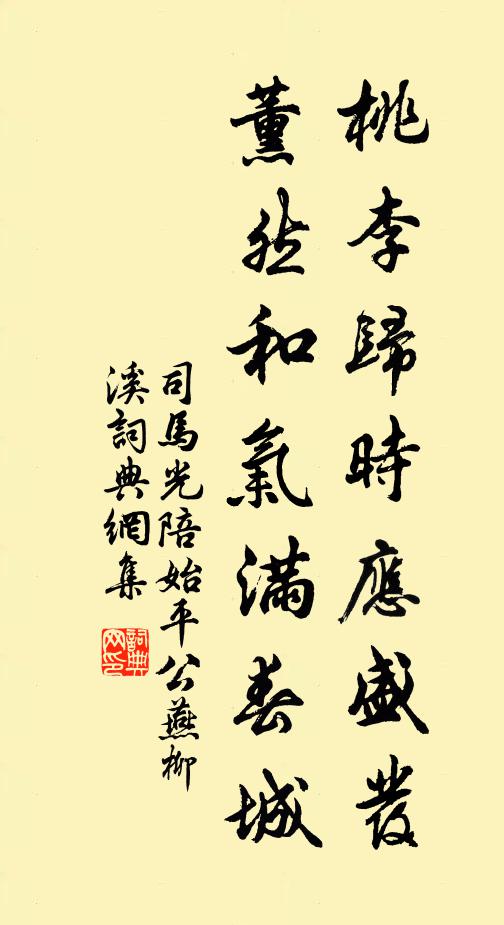 桃李歸時應盛發
薰然和氣滿春城
司馬光陪始平公燕柳
溪詞典網集
詞典网印